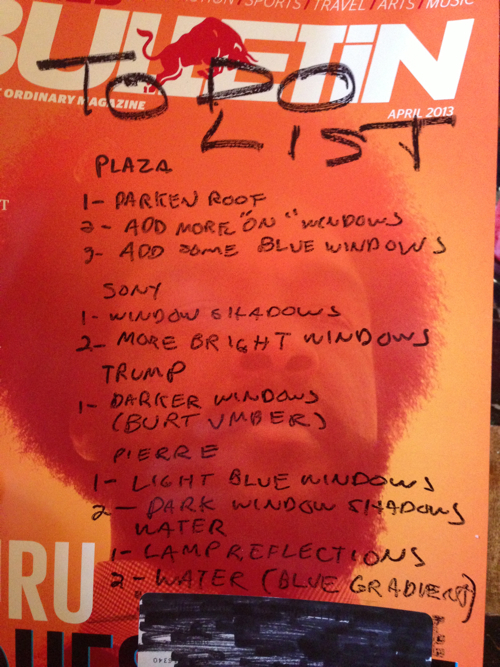 / SPORTS / TRAVEL / ARTS / MUSIC
BULLETiN
ORDINARY MAGAZINE
APRIL 2013
TO DO
LIST
PLAZA
1- DARKEN ROOF
2- ADD MORE "ON" WINDOWS
3- ADD SOME BLUE WINDOWS
SONY
1- WINDOW SHADOWS
2- MORE BRIGHT WINDOWS
TRUMP
1- DARKER WINDOWS
(BURT UMBER)
PIERRE
1- LIGHT BLUE WINDOWS
2- DARK WINDOW SHADOWS
WATER
1- LAMP REFLECTIONS
2- WATER (BLUE GRADIENT)
URU